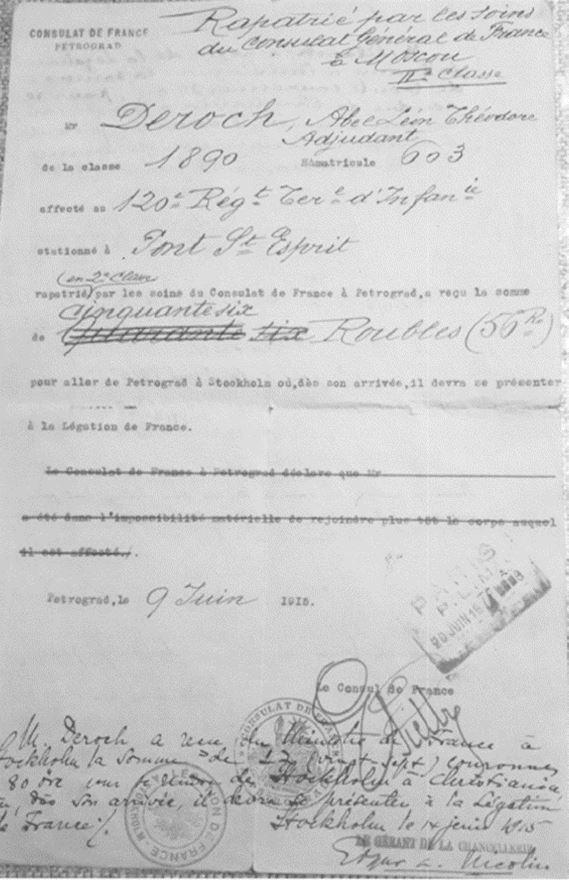 CONSULAT DE FRANCE
PETROGRAD
Rapatrié par les soins
du Consulat Général de France
à Moscou
IIe Classe
Mr Deroch, Abel Léon Théodore
Adjudant
de la classe 1890 Nématricule 603
affecté au 120e Régt Terl d'Infanie
stationné à Pont St Esprit
(en 2e Classe)
rapatrié par les soins du Consulat de France à Petrograd, a reçu la somme
cinquante six
de Quarante six Roubles (56 Ro)
pour aller de Petrograd à Stockholm où, dès son arrivée, il devra se présenter
à la Légation de France.
Le Consulat de France à Petrograd déclare que Mr
a été dans l'impossibilité matérielle de rejoindre plus tôt le corps auquel
il est affecté./.
Petrograd, le 9 Juin 1915.
PARIS
Le Consul de France
CONSULAT DE FRANCE
M. Deroch a reçu du Ministre de France à
Stockholm la somme de 27 (vingt sept) couronnes
80 öre pour de Stockholm à Christiania
où, dès son arrivée, il devra se présenter à la Légation
de France./.
Stockholm le 14 juin 1915
LE GÉRANT DE LA CHANCELLERIE
LEGATION DE FRANCE